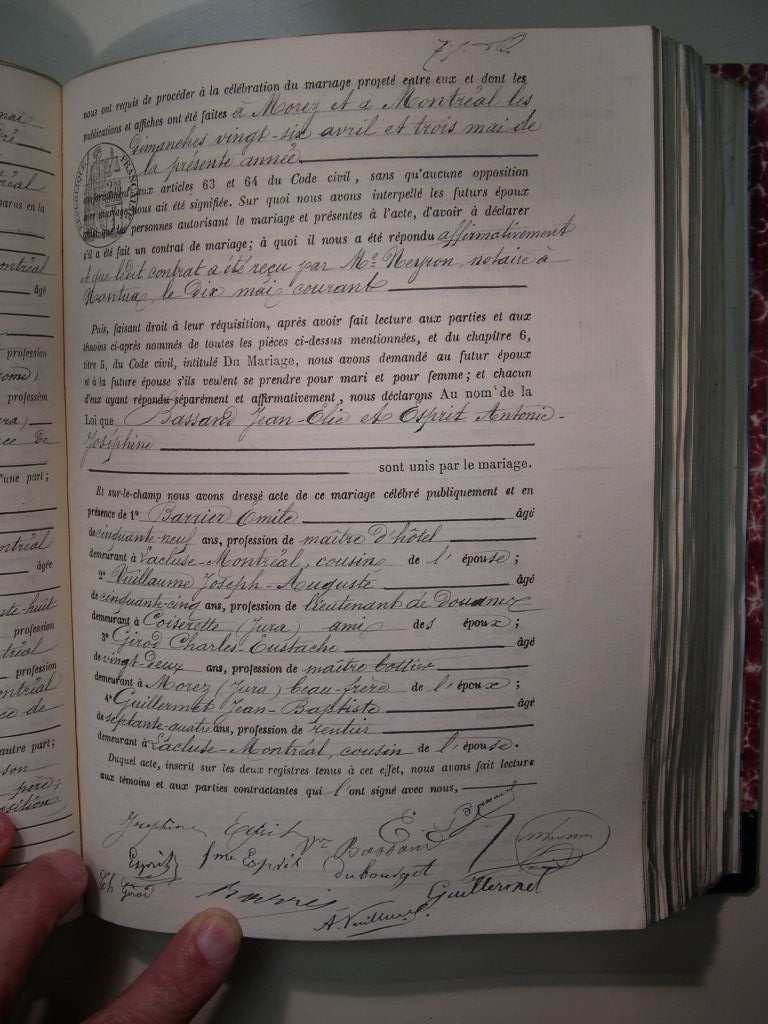 mai
nous ont requis de procéder à la célébration du mariage projeté entre eux et dont les
publications et affiches ont été faites à Morez et à Montréal les
Dimanches vingt-six avril et trois mai de
la présente année
RÉPUBLIQUE FRANÇAISE
conformément aux articles 63 et 64 du Code civil, sans qu'aucune opposition
audit mariage nous ait été signifiée. Sur quoi nous avons interpellé les futurs époux
ainsi que les personnes autorisant le mariage et présentes à l'acte, d'avoir à déclarer
s'il a été fait un contrat de mariage; à quoi il nous a été répondu affirmativement
et que ledit contrat a été reçu par Me Neyron, notaire à
Nantua, le Dix mai courant
Puis, faisant droit à leur réquisition, après avoir fait lecture aux parties et aux
témoins ci-après nommés de toutes les pièces ci-dessus mentionnées, et du chapitre 6,
titre 5, du Code civil, intitulé Du Mariage, nous avons demandé au futur époux
et à la future épouse s'ils veulent se prendre pour mari et pour femme; et chacun
d'eux ayant répondu séparément et affirmativement, nous déclarons Au nom de la
Loi que Bassand Jean-Elie et Esprit Antonie-
Joséphine
sont unis par le mariage.
Et sur-le-champ nous avons dressé acte de ce mariage célébré publiquement et en
présence de 1º Barrier Emile âgé
de cinquante-neuf ans, profession de maître d'hôtel
demeurant à Lacluse-Montréal, cousin de l'épouse;
2º Vuillaume Joseph-Auguste âgé
de cinquante-cinq ans, profession de lieutenant de Douanes
demeurant à Coiserette (Jura) ami des époux;
3º Girod Charles-Eustache âgé
de vingt-deux ans, profession de maître bottier
demeurant à Morez (Jura) beau-frère de l'époux;
4º Guillermet Jean-Baptiste âgé
de septante-quatre ans, profession de rentier
demeurant à Lacluse-Montréal, cousin de l'épouse.
Duquel acte, inscrit sur les deux registres tenus à cet effet, nous avons fait lecture
aux témoins et aux parties contractantes qui l'ont signé avec nous,
Joséphine Esprit E. Bassand
Esprit fme Esprit Dubourget
Ch Girod Guillermet
A. Vuillaume